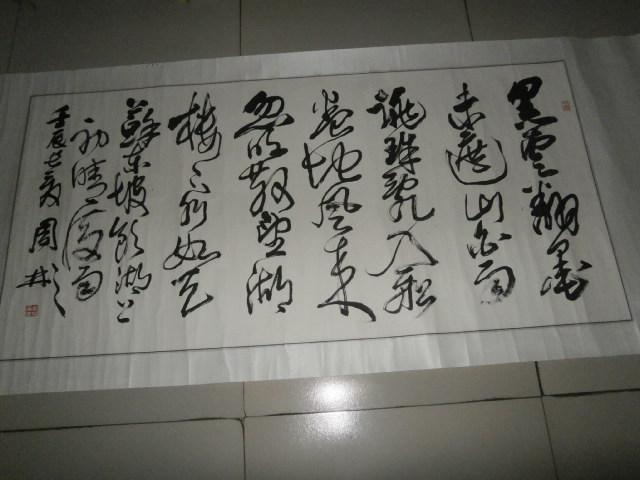 黑雲翻墨
未遮山白雨
跳珠亂入船
卷地風來
忽吹散望湖
樓下水如天
蘇東坡飲湖上
初晴後雨
壬辰之夏 周林